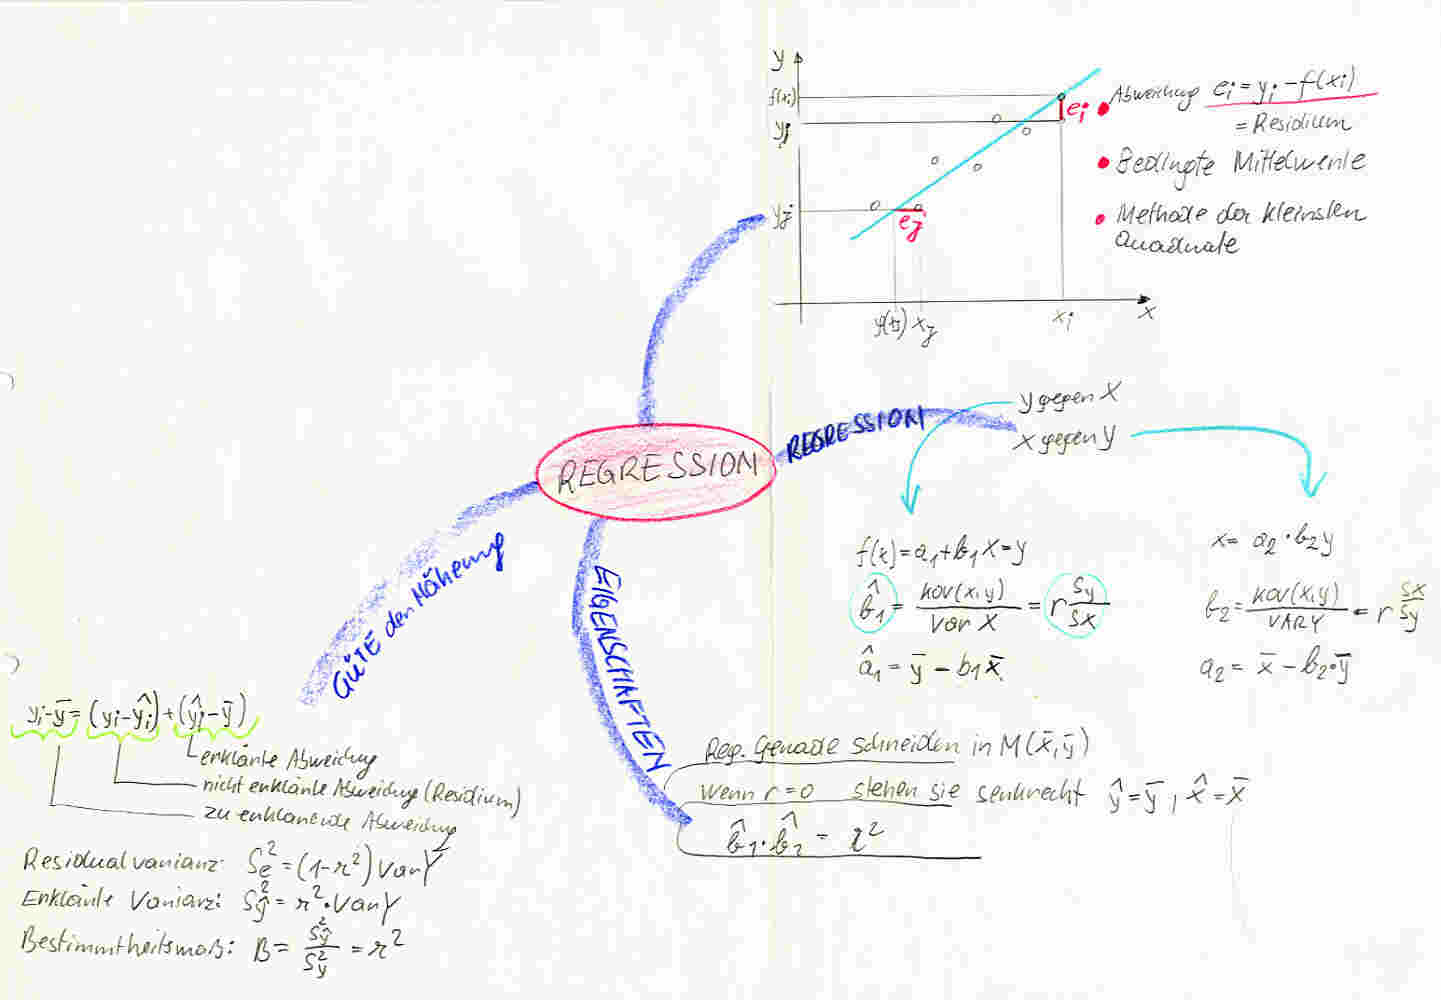 y
f(xi)
yi
yj
ei
ej
xj
xi
x
Abweichung ei = yi - f(xi)
= Residium
Bedingte Mittelwerte
Methode der kleinsten
Quadrate
REGRESSION
REGRESSION
y gegen x
x gegen y
f(x) = a1 + b1 x = y
b̂1 = kov(x,y) / Var X = r Sy / Sx
â1 = ȳ - b1 x̄
x = a2 · b2 y
b2 = kov(x,y) / VAR Y = r Sx / Sy
a2 = x̄ - b2 · ȳ
EIGENSCHAFTEN
Reg. Gerade schneiden in M(x̄,ȳ)
wenn r=0 stehen sie senkrecht ŷ=ȳ, x̂=x̄
b̂1 · b̂2 = r²
GÜTE der Näherung
yi - ȳ = (yi - ŷi) + (ŷi - ȳ)
erklärte Abweichung
nicht erklärte Abweichung (Residium)
zu erklärende Abweichung
Residualvarianz: Se² = (1-r²) Var Y
Erklärte Varianz: Sŷ² = r² · Var Y
Bestimmtheitsmaß: B = Sŷ² / Sy² = r²